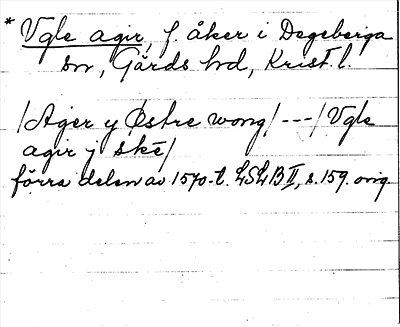 * Vgle agir, f. åker i Degeberga
sn, Gärds hd, Krist. l.
/Ager y Østre wong/ --- /Vgle
agir j skē/
förra delen av 1570-t. LSLB II, s. 159. orig.